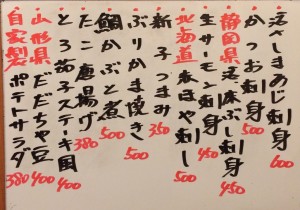 活〆さきあじ刺身 600
かつお刺身 500
静岡県 活床ぶし刺身 450
生サーモン刺身 450
北海道 本ほや刺し 500
新子つまみ 350
ぶりかま焼き 500
鯛かぶと煮 500
たこ唐揚げ 380
とろ茄子ステーキ風 400
山形県 だだちゃ豆 400
自家製 ポテトサラダ 380